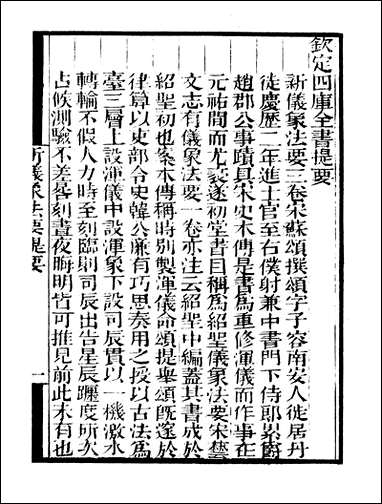 欽定四庫全書提要
新儀象法要三卷宋蘇頌撰頌字子容南安人徙居丹
徒慶歷二年進士官至右僕射兼中書門下侍郎累爵
趙郡公事蹟具宋史本傳是書為重修渾儀而作事在
元祐間而尤袤遂初堂書目稱為紹聖儀象法要宋藝
文志有儀象法要一卷亦注云紹聖中編蓋其書成於
紹聖初也案本傳稱時別製渾儀命頌提舉頌既邃於
律算以吏部令史韓公廉有巧思奏用之授以古法為
臺三層上設渾儀中設渾象下設司辰貫以一機激水
轉輪不假人力時至刻臨則司辰出告星辰躔度所次
占候測驗不差晷刻晝夜晦明皆可推見前此未有也
新儀象法要提要
一